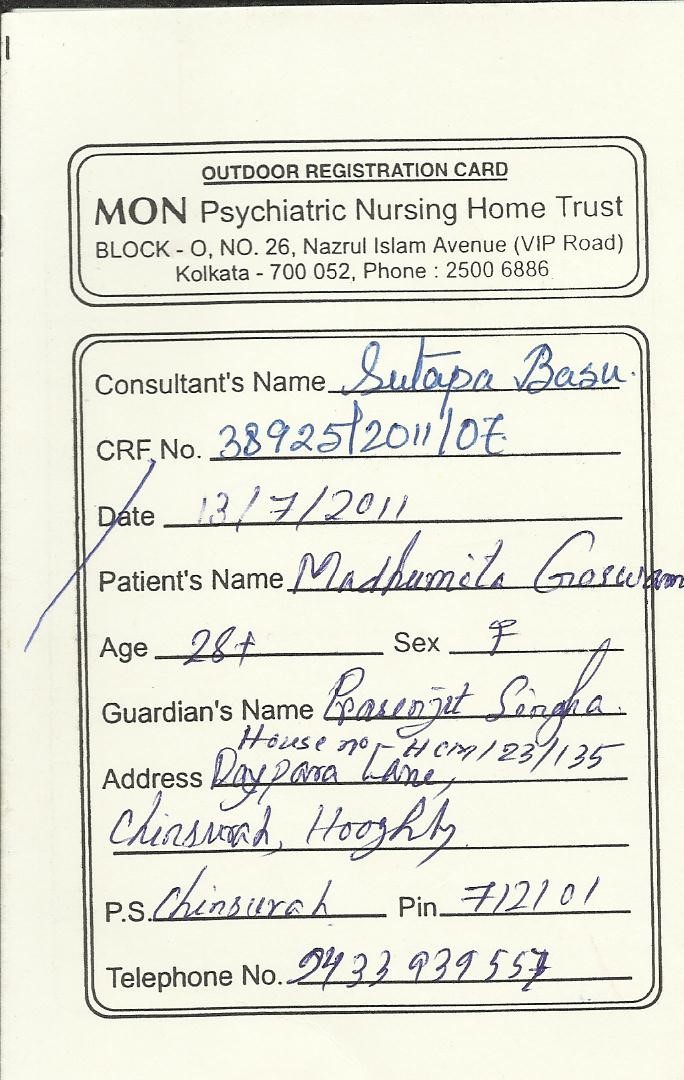 OUTDOOR REGISTRATION CARD
MON Psychiatric Nursing Home Trust
BLOCK - O, NO. 26, Nazrul Islam Avenue (VIP Road)
Kolkata - 700 052, Phone : 2500 6886
Consultant's Name Sutapa Basu.
CRF No. 38925/2011/07
Date 13/7/2011
Patient's Name Madhumita Goswam
Age 28+ Sex F
Guardian's Name Prasenjit Singha.
House no - HCM/23/135
Address Daypara Lane,
Chinsurah, Hooghly
P.S. Chinsurah Pin 712101
Telephone No. 9433 939557